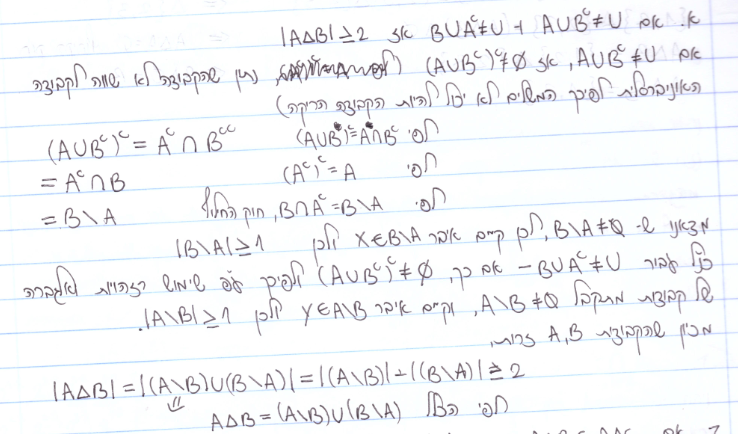 א. אם A∪Bᶜ≠U ו B∪Aᶜ≠U אז |A∆B|≥2
אם A∪Bᶜ≠U, אז (A∪Bᶜ)ᶜ≠∅ ( נתון שהקבוצה לא שווה לקבוצה
האוניברסלית לפיכך המשלים לא יכול להיות הקבוצה הריקה)
לפי (A∪B)ᶜ=Aᶜ∩Bᶜ (A∪Bᶜ)ᶜ = Aᶜ∩Bᶜᶜ
לפי (Aᶜ)ᶜ=A = Aᶜ∩B
לפי B∩Aᶜ=B\A, חוק החילוף = B\A
מצאנו ש- B\A≠∅, לכן קיים איבר X∈B\A ולכן |B\A|≥1
כנ"ל עבור B∪Aᶜ≠U – אם כך, (A∪Bᶜ)ᶜ≠∅ ולפיכך עם שימוש בזהויות אלגברה
של קבוצות מתקבל A\B≠∅, וקיים איבר Y∈A\B ולכן |A\B|≥1.
מכיון שהקבוצות A,B זרות,
|A∆B|=|(A\B)∪(B\A)|=|(A\B)|+|(B\A)|≥2
⇓
לפי A∆B=(A\B)∪(B\A)